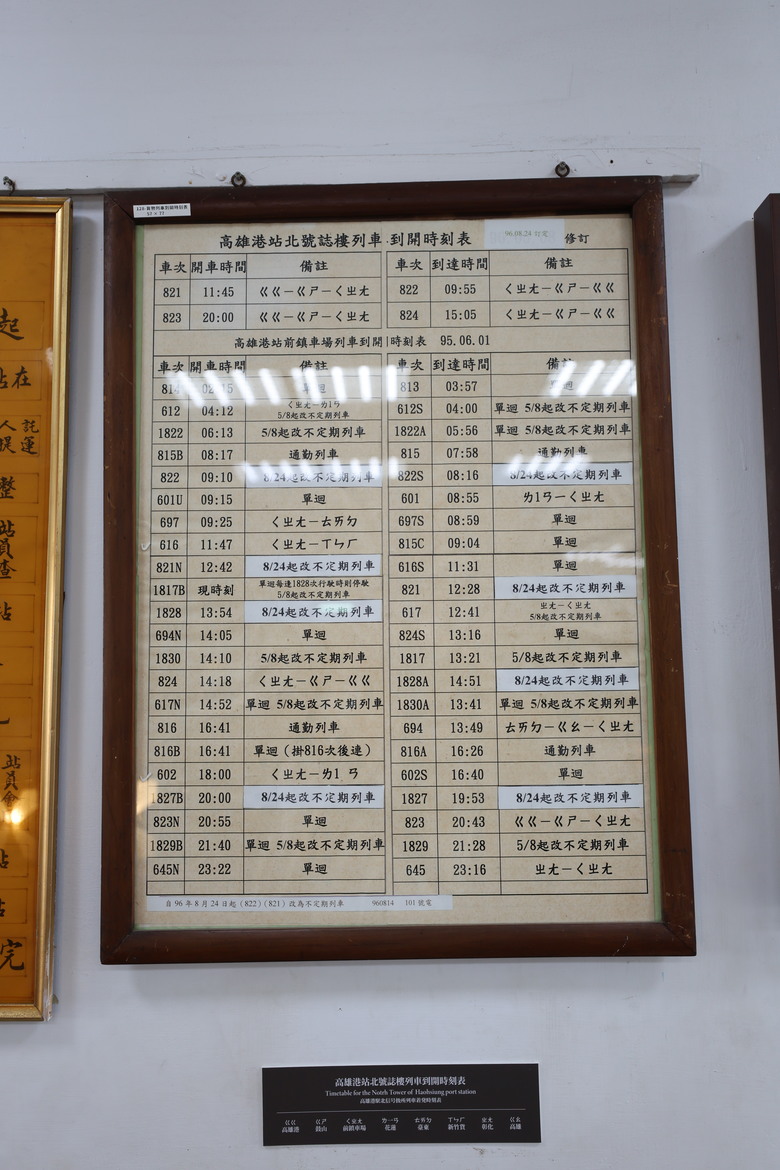 118-貨物列車到開時刻表
57 X 77
高雄港站北號誌樓列車到開時刻表 96.08.24 訂定 修訂
車次 開車時間 備註 車次 到達時間 備註
821 11:45 ㄍㄍ－ㄍㄕ－ㄑㄓㄤ 822 09:55 ㄑㄓㄤ－ㄍㄕ－ㄍㄍ
823 20:00 ㄍㄍ－ㄍㄕ－ㄑㄓㄤ 824 15:05 ㄑㄓㄤ－ㄍㄕ－ㄍㄍ
高雄港站前鎮車場列車到開時刻表 95.06.01
車次 開車時間 備註 車次 到達時間 備註
814 02:15 單迴 813 03:57 單迴
612 04:12 ㄑㄓㄤ－ㄌ1ㄢ 612S 04:00 單迴 5/8起改不定期列車
5/8起改不定期列車
1822 06:13 5/8起改不定期列車 1822A 05:56 單迴 5/8起改不定期列車
815B 08:17 通勤列車 815 07:58 通勤列車
822 09:10 8/24起改不定期列車 822S 08:16 8/24起改不定期列車
601U 09:15 單迴 601 08:55 ㄌ1ㄢ－ㄑㄓㄤ
697 09:25 ㄑㄓㄤ－ㄊㄞㄉ 697S 08:59 單迴
616 11:47 ㄑㄓㄤ－ㄒㄣㄏ 815C 09:04 單迴
821N 12:42 8/24起改不定期列車 616S 11:31 單迴
1817B 現時刻 單迴每逢1828次行駛時則停駛 821 12:28 8/24起改不定期列車
5/8起改不定期列車
1828 13:54 8/24起改不定期列車 617 12:41 ㄓㄤ－ㄑㄓㄤ
5/8起改不定期列車
694N 14:05 單迴 824S 13:16 單迴
1830 14:10 5/8起改不定期列車 1817 13:21 5/8起改不定期列車
824 14:18 ㄑㄓㄤ－ㄍㄕ－ㄍㄍ 1828A 14:51 8/24起改不定期列車
617N 14:52 單迴 5/8起改不定期列車 1830A 13:41 單迴 5/8起改不定期列車
816 16:41 通勤列車 694 13:49 ㄊㄞㄉ－ㄍㄠ－ㄑㄓㄤ
816B 16:41 單迴（掛816次後連） 816A 16:26 通勤列車
602 18:00 ㄑㄓㄤ－ㄌ1 ㄢ 602S 16:40 單迴
1827B 20:00 8/24起改不定期列車 1827 19:53 8/24起改不定期列車
823N 20:55 單迴 823 20:43 ㄍㄍ－ㄍㄕ－ㄑㄓㄤ
1829B 21:40 單迴 5/8起改不定期列車 1829 21:28 5/8起改不定期列車
645N 23:22 單迴 645 23:16 ㄓㄤ－ㄑㄓㄤ
自 96 年 8 月 24 日起（822）(821) 改為不定期列車 960814 101 號電
起
站在
人 託
提 運
整
站員
查
站
站員會
站
站
完
高雄港站北號誌樓列車到開時刻表
Timetable for the Notrh Tower of Haohsiung port station
高雄港駅北信号扱所列車着発時刻表
ㄍㄍ ㄍㄕ ㄑㄓㄤ ㄌㄧㄢ ㄊㄞㄉ ㄒㄣㄏ ㄓㄤ ㄍㄠ
高雄港 鼓山 前鎮車場 花蓮 臺東 新竹貨 彰化 高雄